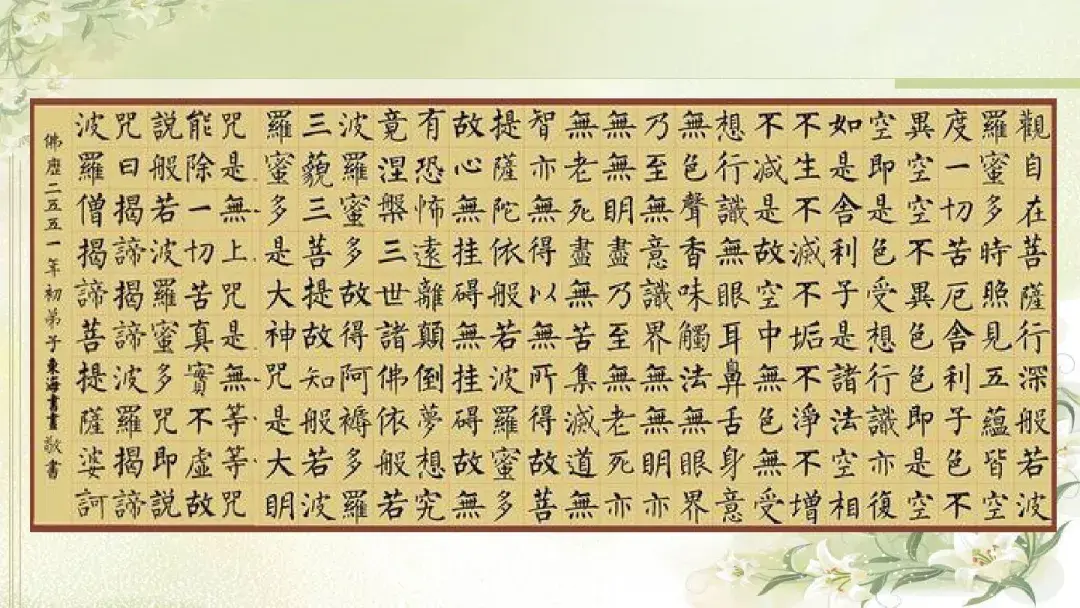 觀自在菩薩行深般若波
羅蜜多時照見五蘊皆空
度一切苦厄舍利子色不
異空空不異色色即是空
空即是色受想行識亦復
如是舍利子是諸法空相
不生不滅不垢不淨不增
不減是故空中無色無受
想行識無眼耳鼻舌身意
無色聲香味觸法無眼界
乃至無意識界無無明亦
無無明盡乃至無老死亦
無老死盡無苦集滅道無
智亦無得以無所得故菩
提薩陀依般若波羅蜜多
故心無挂碍無挂碍故無
有恐怖遠離顛倒夢想究
竟涅槃三世諸佛依般若
波羅蜜多故得阿褥多羅
三藐三菩提故知般若波
羅蜜多是大神咒是大明
咒是無上咒是無等等咒
能除一切苦真實不虛故
說般若波羅蜜多咒即說
咒曰揭諦揭諦波羅揭諦
波羅僧揭諦菩提薩婆訶
佛歷二五五一年初弟子東海敬書